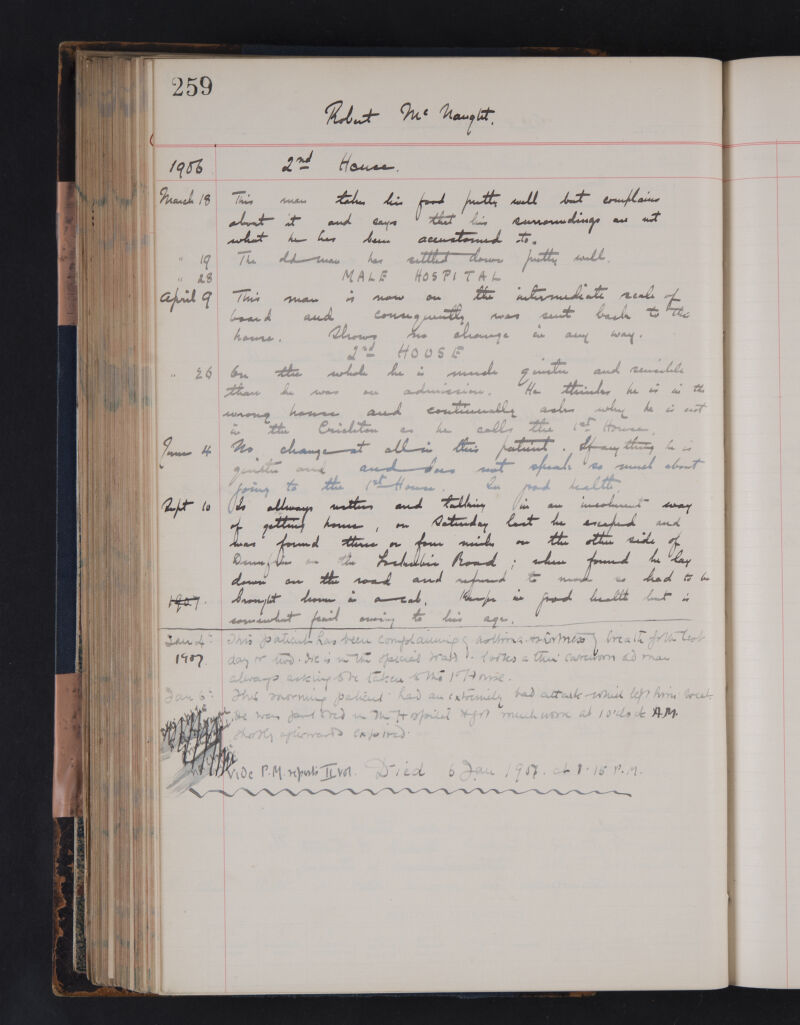 259
Robert Mc Naught.
1906 2nd House.
March 18 This man takes his food pretty well but complains
about it and says that his surroundings are not
what he has been accustomed to.
" 19 The old man has settled down pretty well.
" 28 MALE HOSPITAL
April 9 This man is now on the intermediate scale of
board and consequently was sent back to the
house. Shows no change in any way.
2nd HOUSE
" 26 On the whole he is much quieter and sensible
than he was on admission. He thinks he is in the
wrong house and continually asks why he is not
in the Crichton as he calls the 1st House.
June 4 No change at all in this patient. If anything he is
quieter and and does not speak so much about
going to the 1st House. In good health
Sept 10 Is allways restless and talking in an incoherent way
of getting home, on Saturday last he escaped and
was found three or four miles on the other side of
Dumfries on the Lockerbie Road; when found he lay
down on the road and refused to move so had to be
1907. brought home in a cab. Keeps in good health but is
somewhat frail owing to his age.
Jan 4th This patient has been complaining of shortness of breath for the last
1907 day or two. He is in the special ward. Looks a thin careworn old man
always asking to be taken to the 1st House.
Jan 6th This morning patient had an extremely bad attack which left him weak.
He was in the Hospital & got much worse at 10 o'clock A.M.
Shortly afterwards expired.
Vide P.M. reports II vol. Died 6 Jan 1907. at 1.15 P.M.